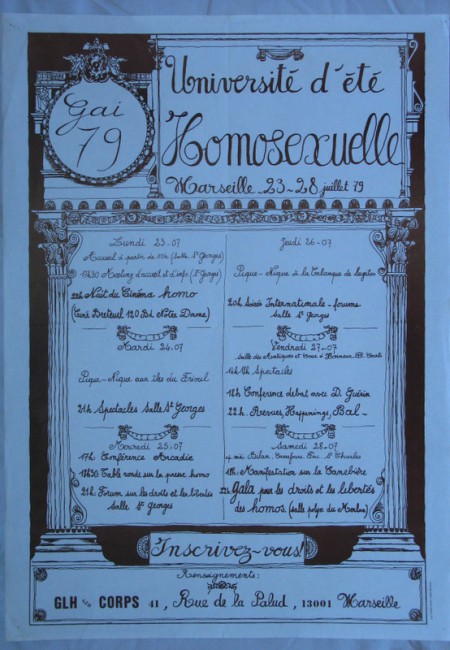 Gai
79
Université d'été
Homosexuelle
Marseille 23-28 juillet 79
Lundi 23.07
Accueil à partir de (Salle St Georges)
17H30 Meeting d'accueil et d'info. (St Georges)
22H Nuit du Cinéma homo
(Ciné Breteuil 120 Bd Notre Dame)
Mardi 24.07
Pique-Nique aux îles du Frioul
21H Spectacles Salle St Georges
Mercredi 25.07
17H. Conférence Arcadie
17H30 Table ronde sur la presse homo
21H. Forum sur les droits et les libertés
Salle St Georges
Jeudi 26-07
Pique-Nique à la Calanque de
20H. Soirée Internationale - forums
Salle St Georges
Vendredi 27-07
Salle des
Spectacles
18H Conference debat avec D. Guérin
22H. Revues, Happenings, Bal-
Samedi 28-07
Bilan, St Charles
Manifestation sur la Canebière
22H Gala pour les droits et les libertés
des homos (salle polyv. du Merlan)
Inscrivez-vous!
Renseignements:
GLH CORPS 41, Rue de la Palud, 13001 Marseille